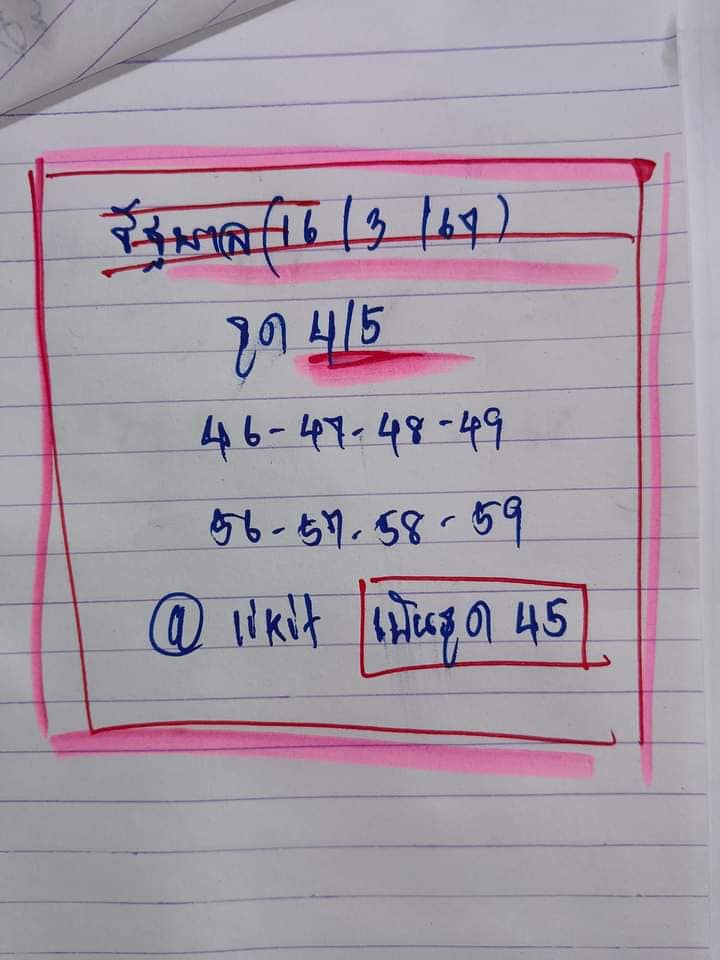 รัฐบาล (16/3/67)
รูด 4/5
46-47-48-49
56-57-58-59
@ likit เน้นรูด 45